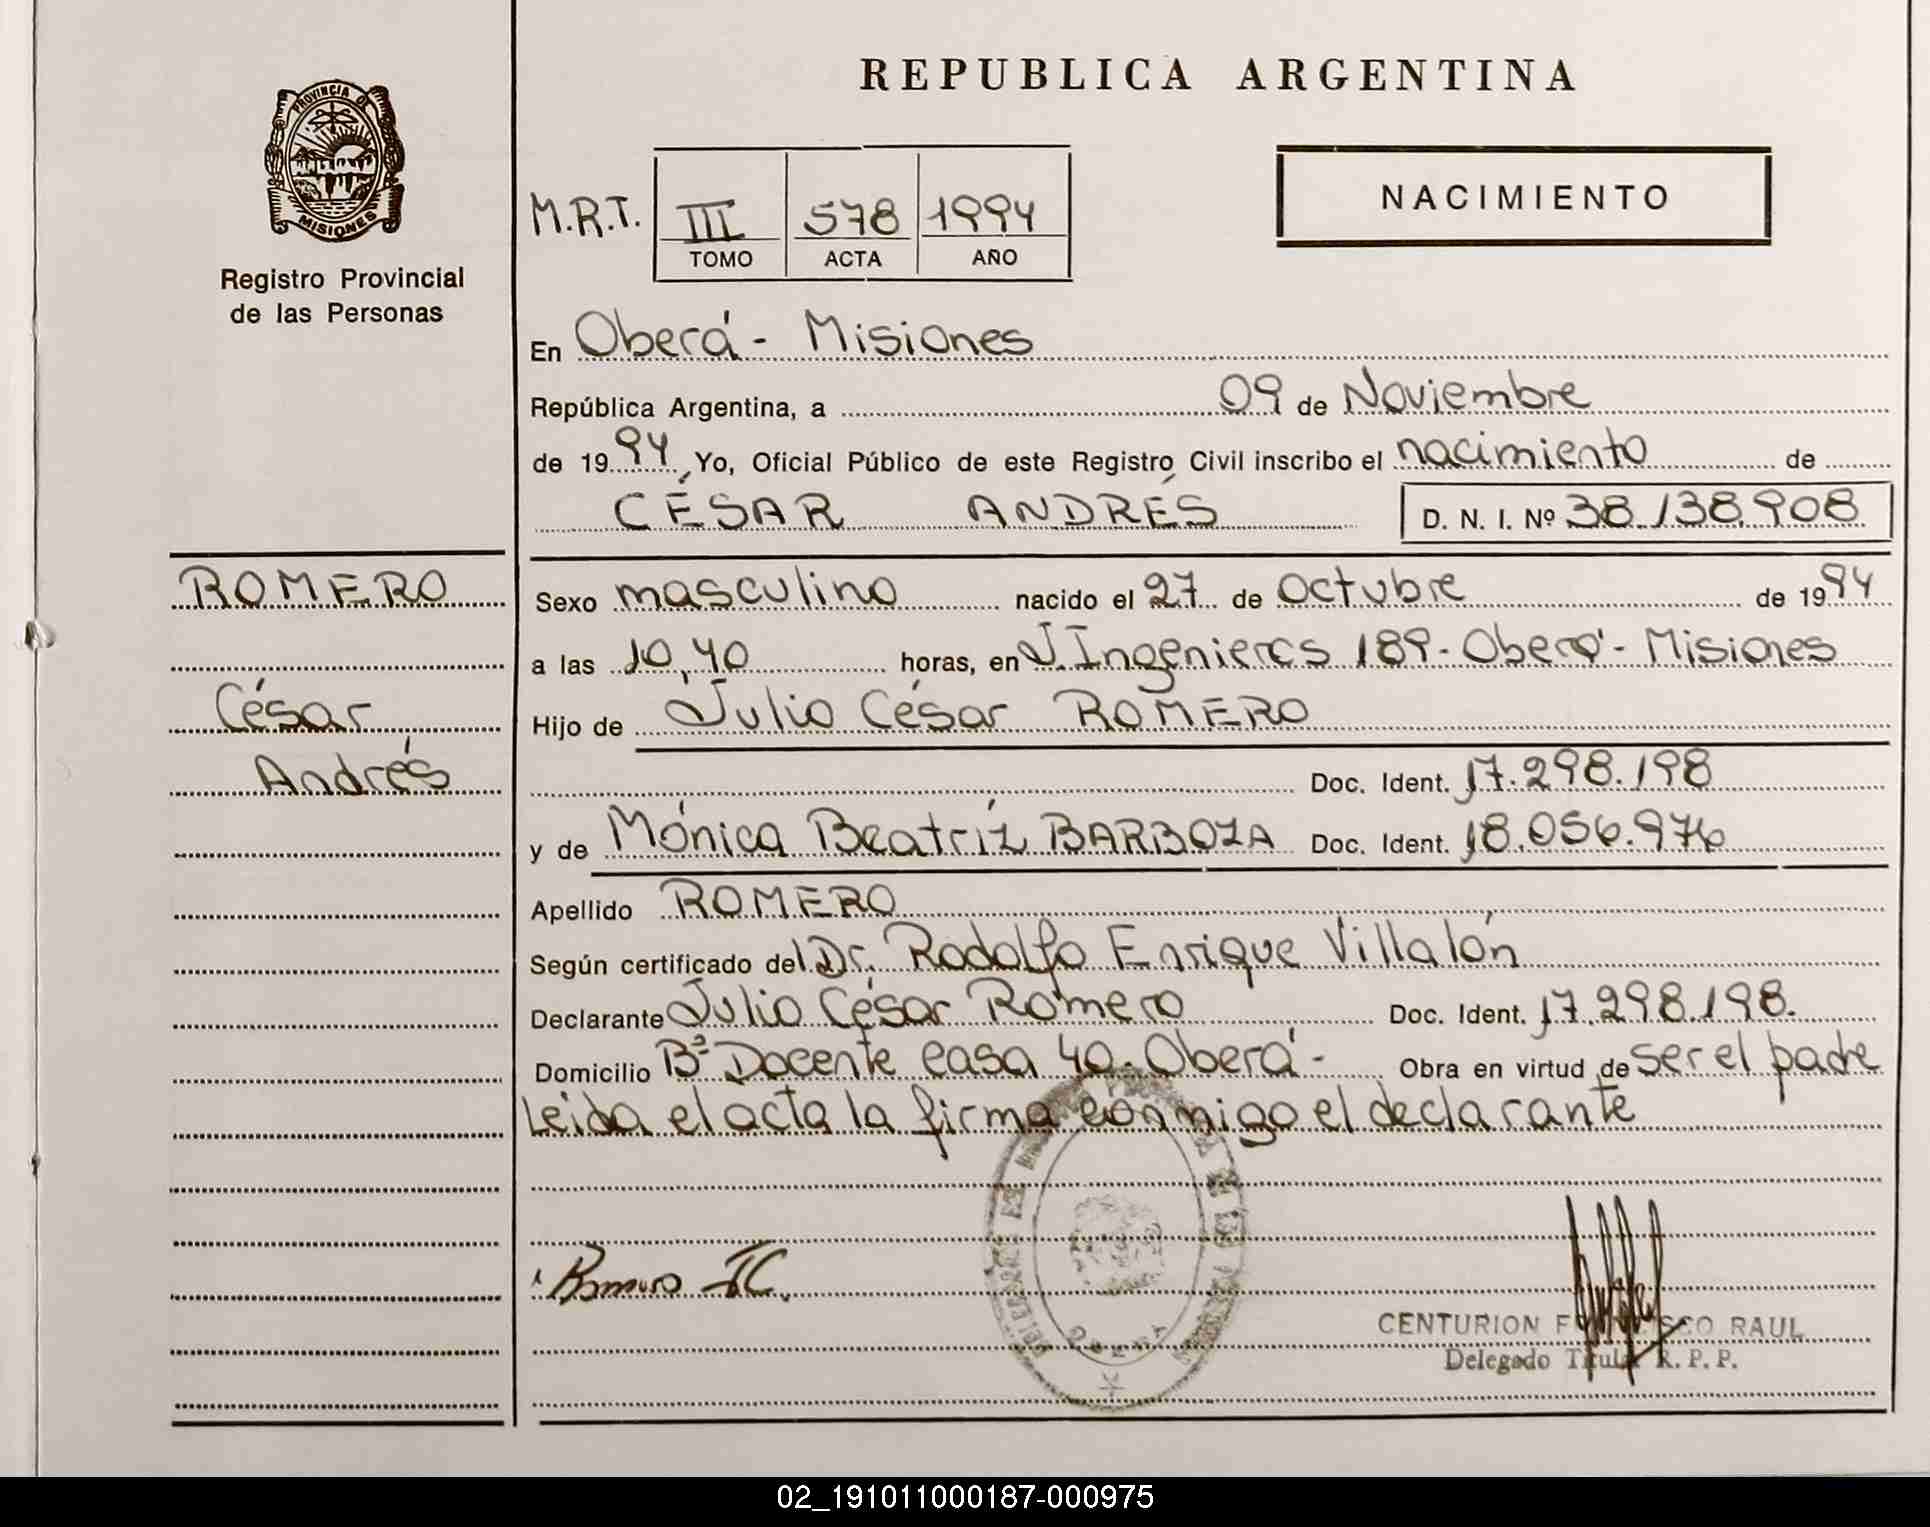 REPUBLICA ARGENTINA
PROVINCIA DE
MISIONES
Registro Provincial
de las Personas
NACIMIENTO
M.R.T. III 578 1994
TOMO ACTA AÑO
En Oberá - Misiones
República Argentina, a 09 de Noviembre
de 1994, Yo, Oficial Público de este Registro Civil inscribo el nacimiento de
CÉSAR ANDRÉS D. N. I. Nº 38.138.908
ROMERO
César
Andrés
Sexo masculino nacido el 27 de Octubre de 1994
a las 10,40 horas, en J. Ingenieros 189 - Oberá - Misiones
Hijo de Julio César ROMERO
Doc. Ident. 17.298.198
y de Mónica Beatríz BARBOZA Doc. Ident. 18.056.976
Apellido ROMERO
Según certificado del Dr. Rodolfo Enrique Villalón
Declarante Julio César Romero Doc. Ident. 17.298.198.
Domicilio Bº Docente casa 40 - Oberá - Obra en virtud de ser el padre
Leida el acta la firma conmigo el declarante
Romero JC.
CENTURION RAUL
Delegado Titular R. P. P.
02_191011000187-000975